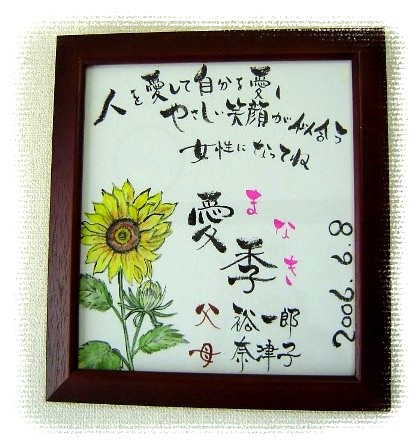 人を愛して自分を愛し
やさしい笑顔が似合う
女性になってね
愛季
まなき
父 裕一郎
母 奈津子
2006.9.8